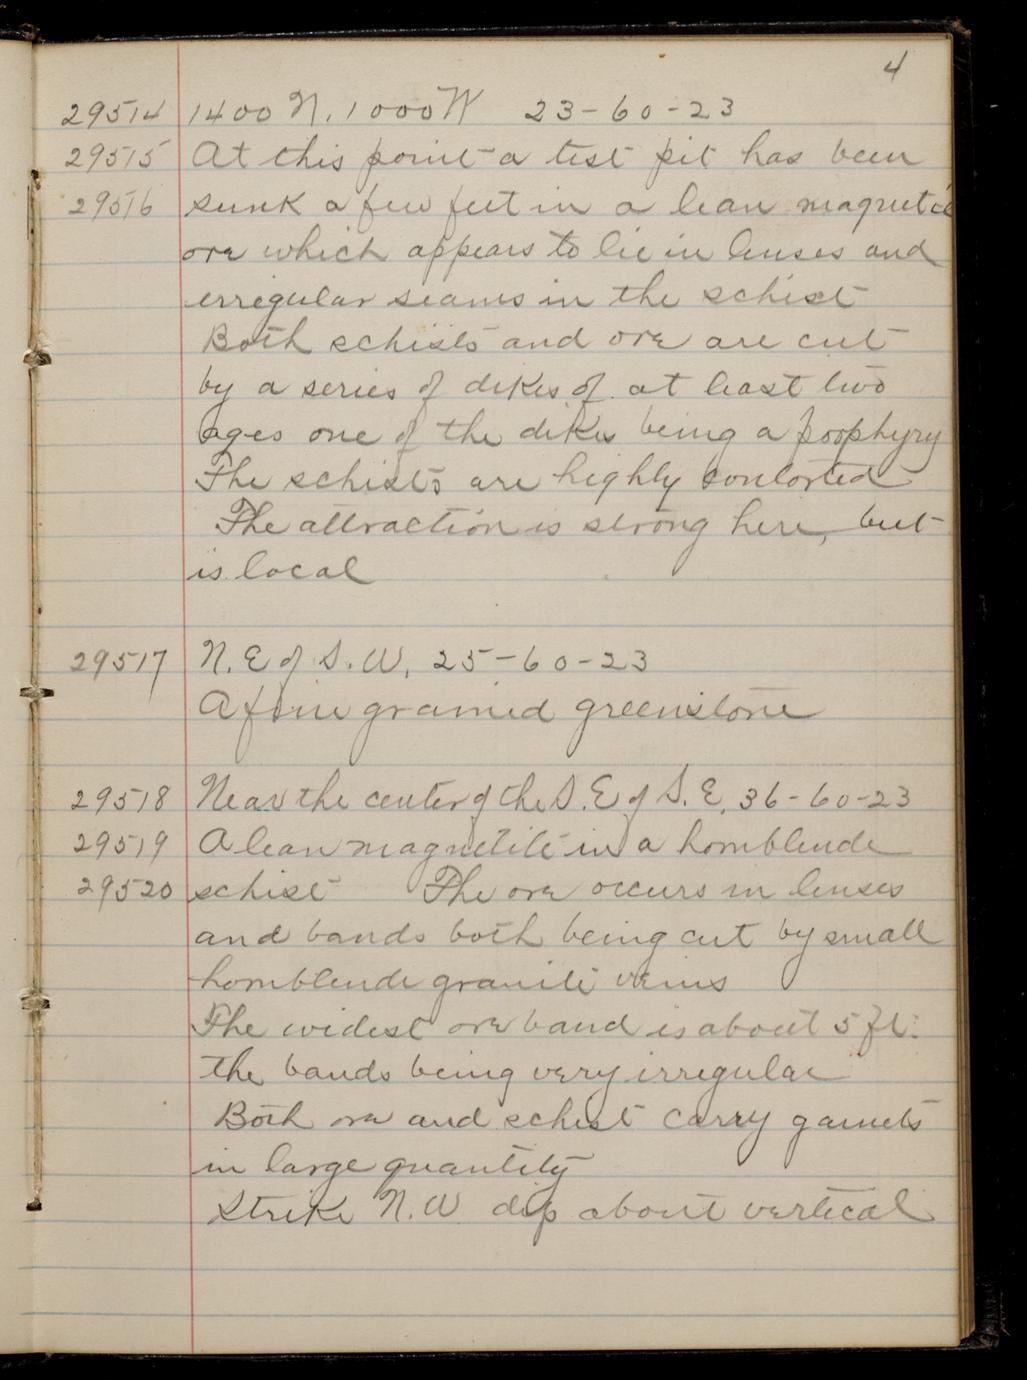 4
29514 1400 N. 1000 W 23-60-23
29515 At this point a test pit has been
29516 sunk a few feet in a lean magnetic
ore which appears to lie in lenses and
irregular seams in the schist
Both schists and ore are cut
by a series of dikes of at least two
ages one of the dikes being a poophyry
The schists are highly contorted
The attraction is strong here, but
is local
29517 N. E of S. W, 25-60-23
A fine grained greenstone
29518 Near the center of the S. E of S. E. 36-60-23
29519 A lean magnetite in a hornblende
29520 schist The ore occurs in lenses
and bands both being cut by small
hornblende granite veins
The widest ore band is about 5 ft.
the bands being very irregular
Both ore and schist carry garnets
in large quantity
Strike N. W. dip about vertical